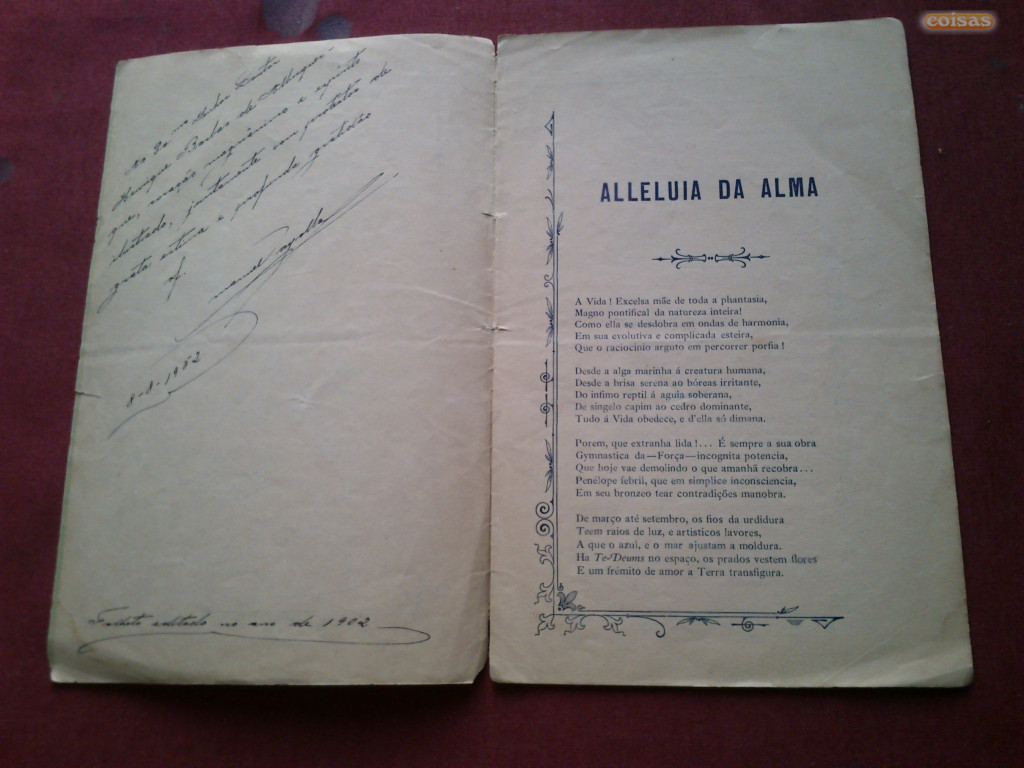 coisas
Ao Ex.mo Senhor Doutor
Henrique Barbas de Albuquer
que, coração magnânimo e espirito
ilustrado, juntamente com protestos de
grata estima e profunda gratidão
of.
Manuel
8-8-1952
Folheto editado no ano de 1902
ALLELUIA DA ALMA
A Vida ! Excelsa mãe de toda a phantasia,
Magno pontifical da natureza inteira!
Como ella se desdobra em ondas de harmonia,
Em sua evolutiva e complicada esteira,
Que o raciocinio arguto em percorrer porfia !
Desde a alga marinha á creatura humana,
Desde a brisa serena ao bóreas irritante,
Do infimo reptil á aguia soberana,
De singelo capim ao cedro dominante,
Tudo á Vida obedece, e d'ella só dimana.
Porem, que extranha lida !... É sempre a sua obra
Gymnastica da—Força—incognita potencia,
Que hoje vae demolindo o que amanhã recobra...
Penélope febril, que em simplice inconsciencia,
Em seu bronzeo tear contradições manobra.
De março até setembro, os fios da urdidura
Teem raios de luz, e artisticos lavores,
A que o azul, e o mar ajustam a moldura.
Ha Te-Deums no espaço, os prados vestem flores
E um frémito de amor a Terra transfigura.